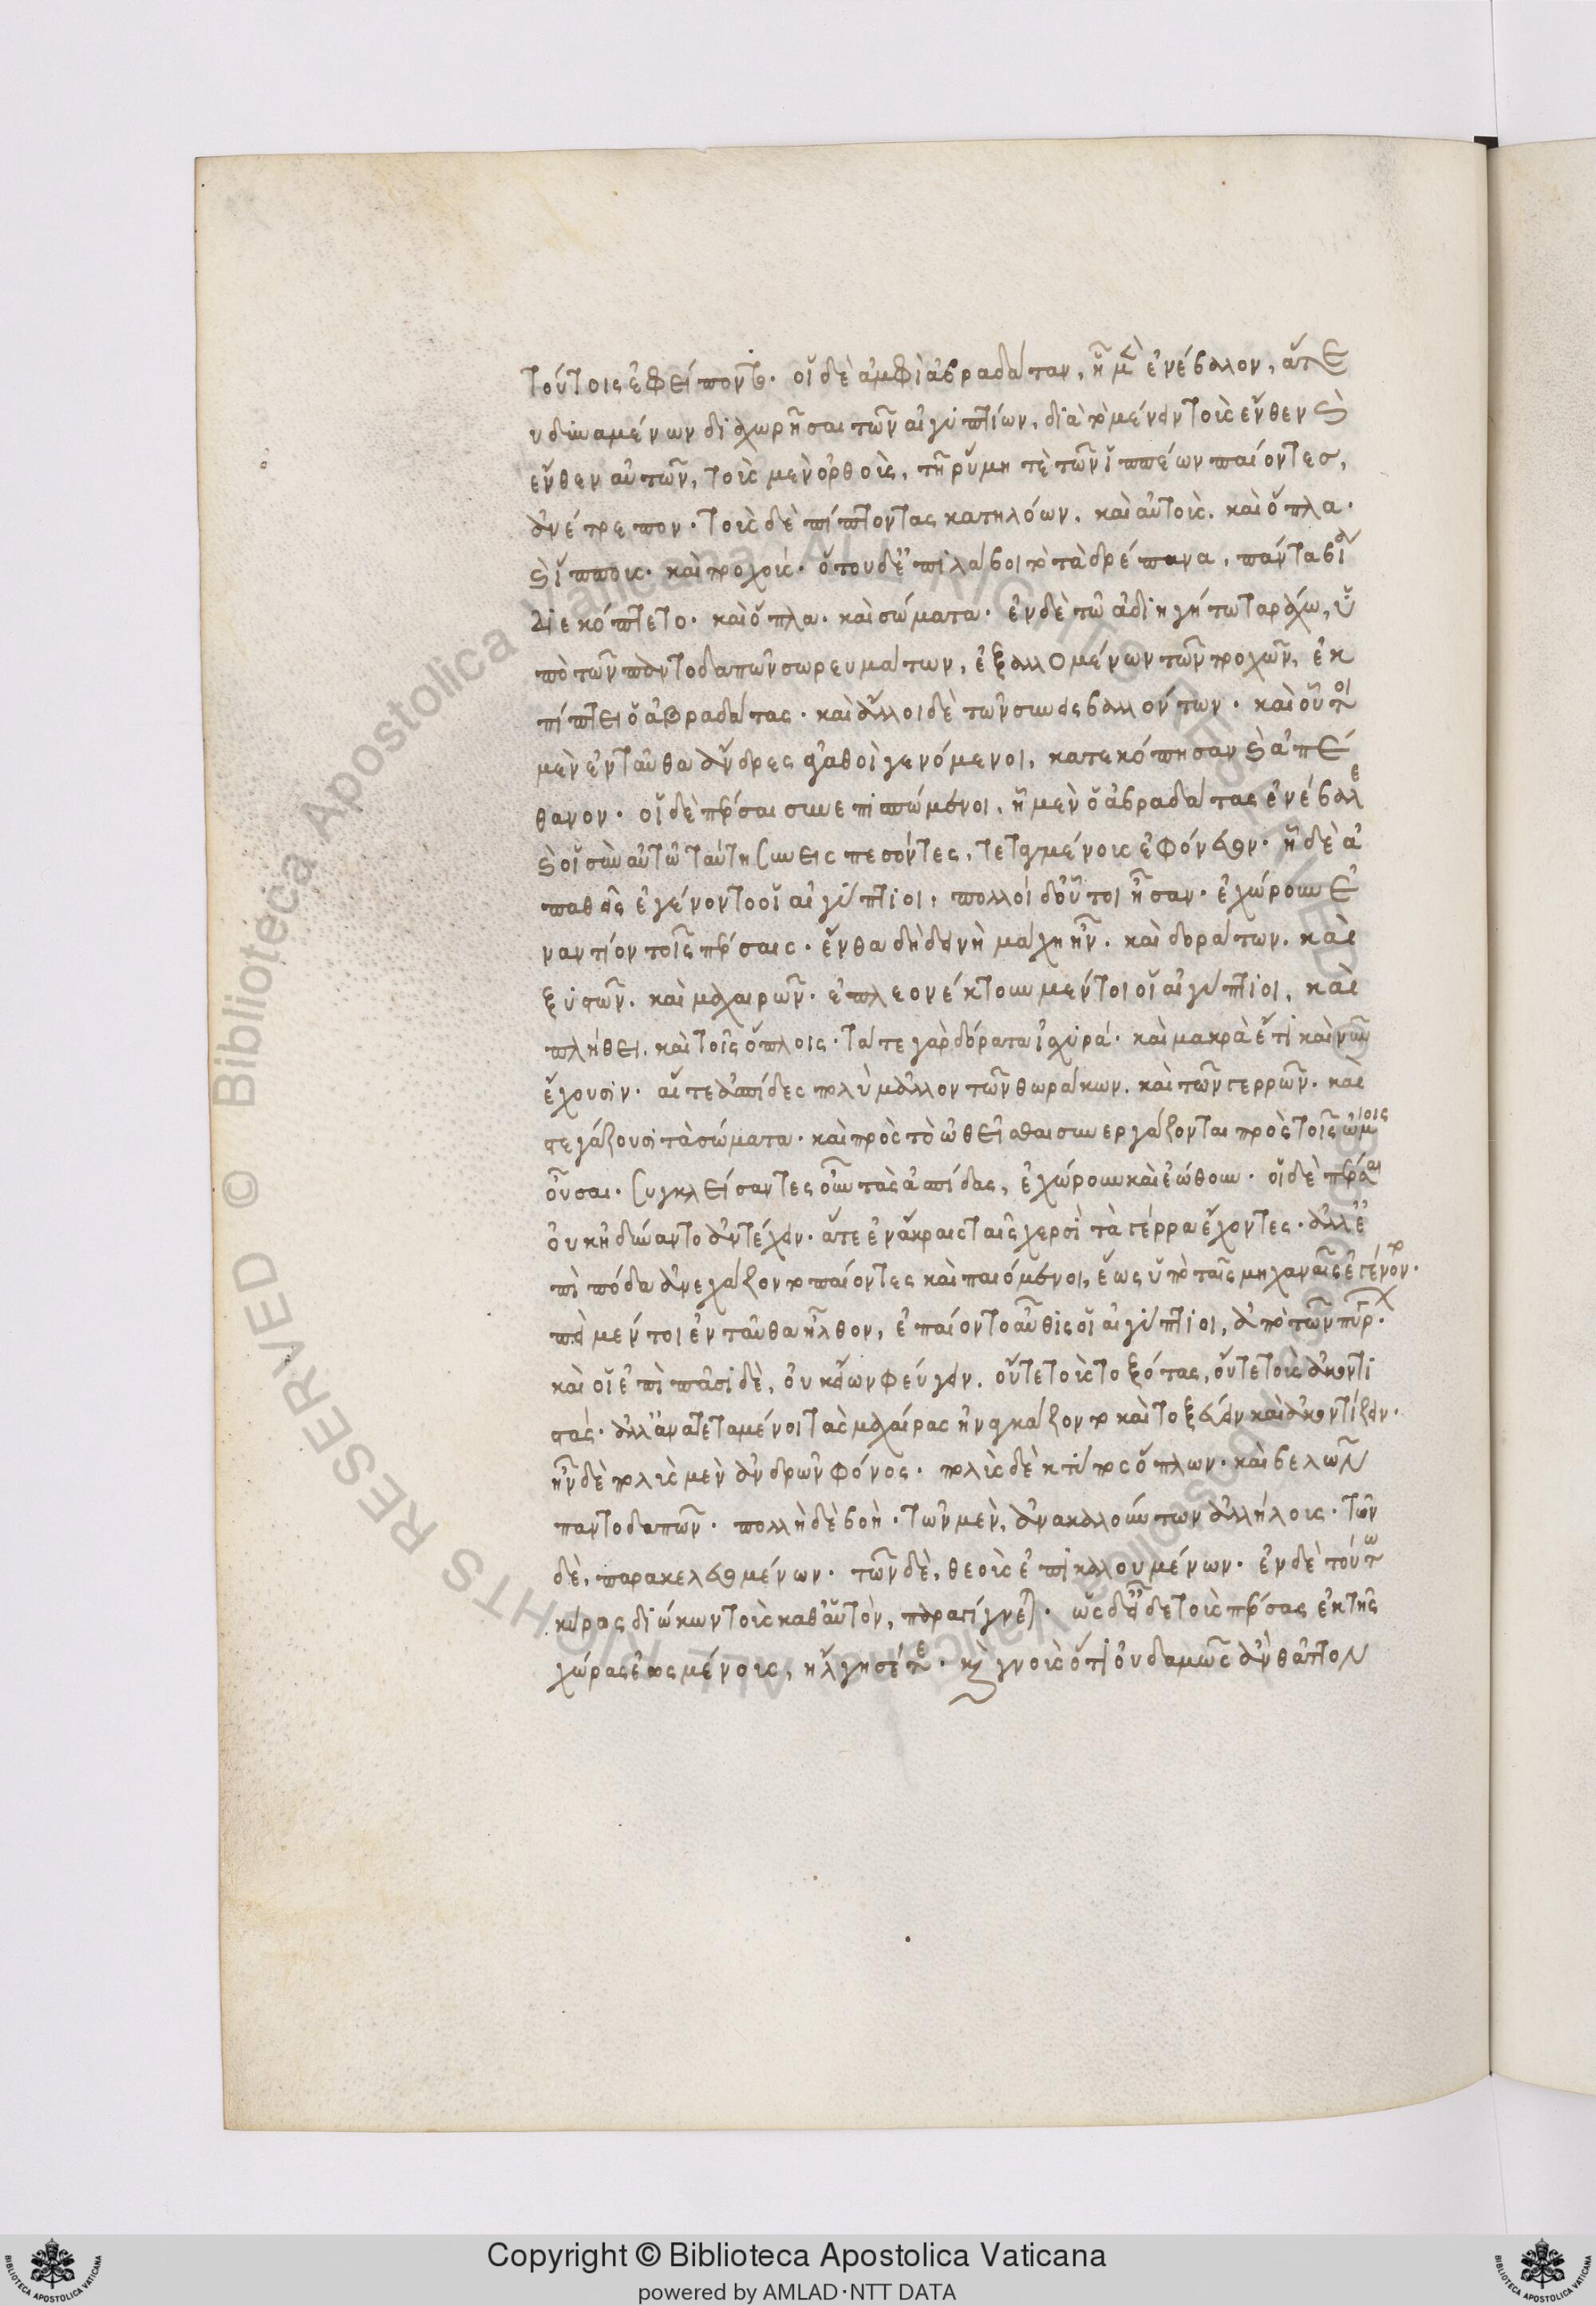 τούτοις ἐφείποντο· οἱ δὲ ἀμφὶ ἀβραδάταν, ἧ μὲν ἐνέβαλλον, ἅτε
υ δυναμένων διαχωρῆσαι τῶν αἰγυπτίων, διὰ τὸ μένειν τοὺς ἔνθεν καὶ
ἔνθεν αὐτῶν, τοὺς μὲν ὀρθοὺς, τῆ ῥύμη τὲ τῶν ἱππέων παίοντες,
ἀνέτρεπον· τοὺς δὲ πίπτοντας κατηλόων. καὶ αὐτοὺς. καὶ ὅπλα·
καὶ ἵπποις· καὶ τροχοῖς· ὅτου δ' ἐπιλάβοιτο τὰ δρέπανα, πάντα βία
διεκόπτετο· καὶ ὅπλα· καὶ σώματα· ἐν δὲ τῶ ἀδιηγήτω ταράχω, ὑ
πὸ τῶν παντοδαπῶν σωρευμάτων, ἐξαλλομένων τῶν τροχῶν, ἐκ
πίπτει ὁ ἀβραδάτας· καὶ ἄλλοι δὲ τῶν συνεισβαλλόντων· καὶ οὗτοι
μὲν ἐνταῦθα ἄνδρες ἀγαθοὶ γενόμενοι, κατεκόπησαν καὶ ἀπέ
θανον· οἱ δὲ πέρσαι συνεπισπώμενοι, ἧ μὲν ὁ ἀβραδάτας ἐνέβαλε
καὶ οἱ σὺν αὐτῶ ταύτη συνεισπεσόντες, τεταγμένους ἐφόνευον· ἧ δὲ ἀ
παθεῖς ἐγένοντο οἱ αἰγύπτιοι, πολλοὶ δ' οὗτοι ἦσαν· ἐχώρουν ἐ
ναντίον τοῖς πέρσαις· ἔνθα δὴ δεινὴ μάχη ἦν. καὶ δοράτων. καὶ
ξυστῶν. καὶ μαχαιρῶν· ἐπλεονέκτουν μέντοι οἱ αἰγύπτιοι, καὶ
πλήθει. καὶ τοῖς ὅπλοις· τά τε γὰρ δόρατα ἰσχυρά· καὶ μακρὰ ἔτι καὶ νῦν
ἔχουσιν· αἵ τε ἀσπίδες πολὺ μᾶλλον τῶν θωράκων. καὶ τῶν γερρῶν. καὶ
στεγάζουσι τὰ σώματα· καὶ πρὸς τὸ ὠθεῖσθαι συνεργάζονται πρὸς τοῖς ὤμοις
οὖσαι· συγκλείσαντες οὖν τὰς ἀσπίδας, ἐχώρουν καὶ ἐώθουν· οἱ δὲ πέρσαι
οὐκ ἠδύναντο ἀντέχειν· ἅτε ἐν ἄκραις ταῖς χερσὶ τὰ γέρρα ἔχοντες· ἀλλ' ἐ
πὶ πόδα ἀνεχάζοντο παίοντες καὶ παιόμενοι, ἕως ὑπὸ ταῖς μηχαναῖς ἐγένοντο·
ἐπεὶ μέντοι ἐνταῦθα ἦλθον, ἐπαίοντο αὖθις οἱ αἰγύπτιοι, ἀπὸ τῶν πύργων·
καὶ οἱ ἐπὶ πᾶσι δὲ, οὐκ εἴων φεύγειν. οὔτε τοὺς τοξότας, οὔτε τοὺς ἀκοντι
στάς· ἀλλ' ἀνατεταμένοι τὰς μαχαίρας ἠνάγκαζον τὸ καὶ τοξεύειν καὶ ἀκοντίζειν·
ἦν δὲ πολὺς μὲν ἀνδρῶν φόνος· πολὺς δὲ κτύπος ὅπλων· καὶ βελῶν
παντοδαπῶν· πολλὴ δὲ βοὴ· τῶν μὲν, ἀνακαλούντων ἀλλήλους· τῶν
δὲ, παρακελευομένων· τῶν δὲ, θεοὺς ἐπικαλουμένων· ἐν δὲ τούτω
κῦρος διώκων τοὺς καθ' αὑτὸν, παραγίγνεται· ὡς δ' εἶδε τοὺς πέρσας ἐκ τῆς
χώρας ἐωσμένους, ἤλγησέ τε· καὶ γνοὺς ὅτι οὐδαμῶς ἂν θᾶττον
Copyright © Biblioteca Apostolica Vaticana
powered by AMLAD·NTT DATA